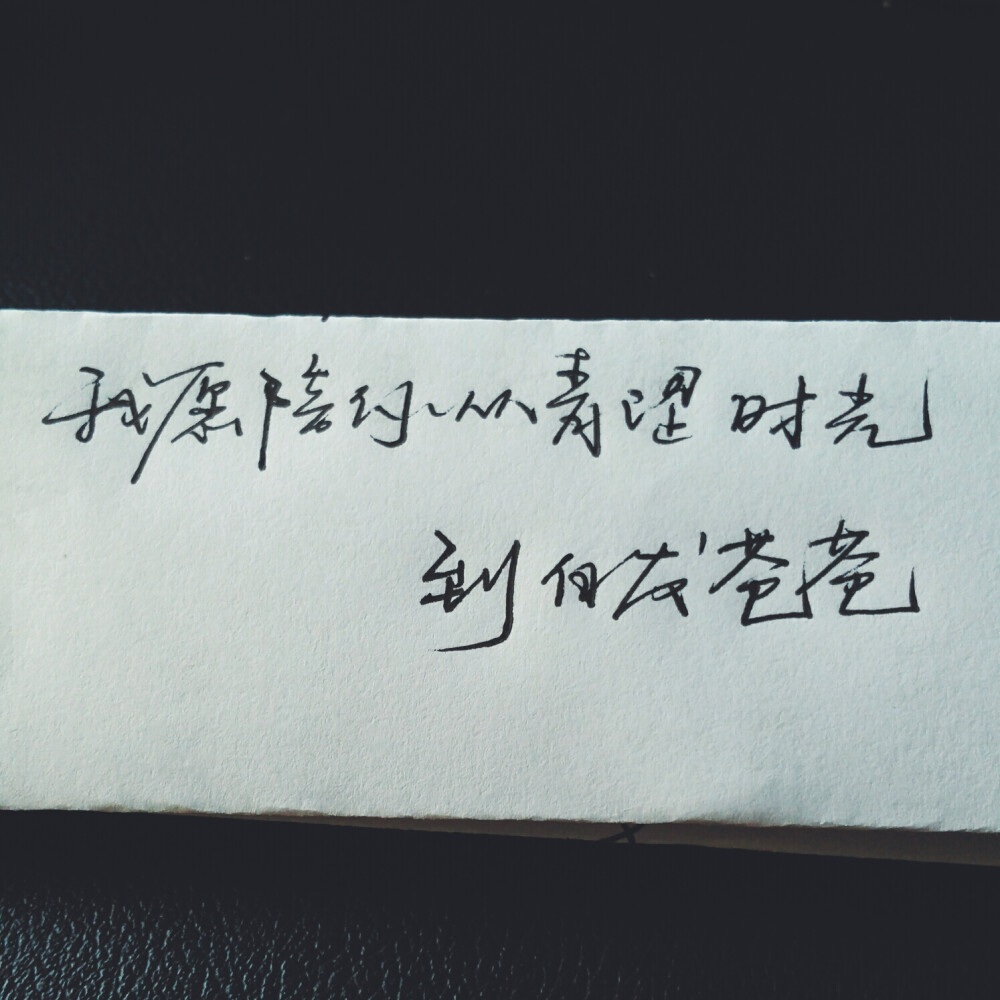 我愿陪你从青涩时光
到白发苍苍